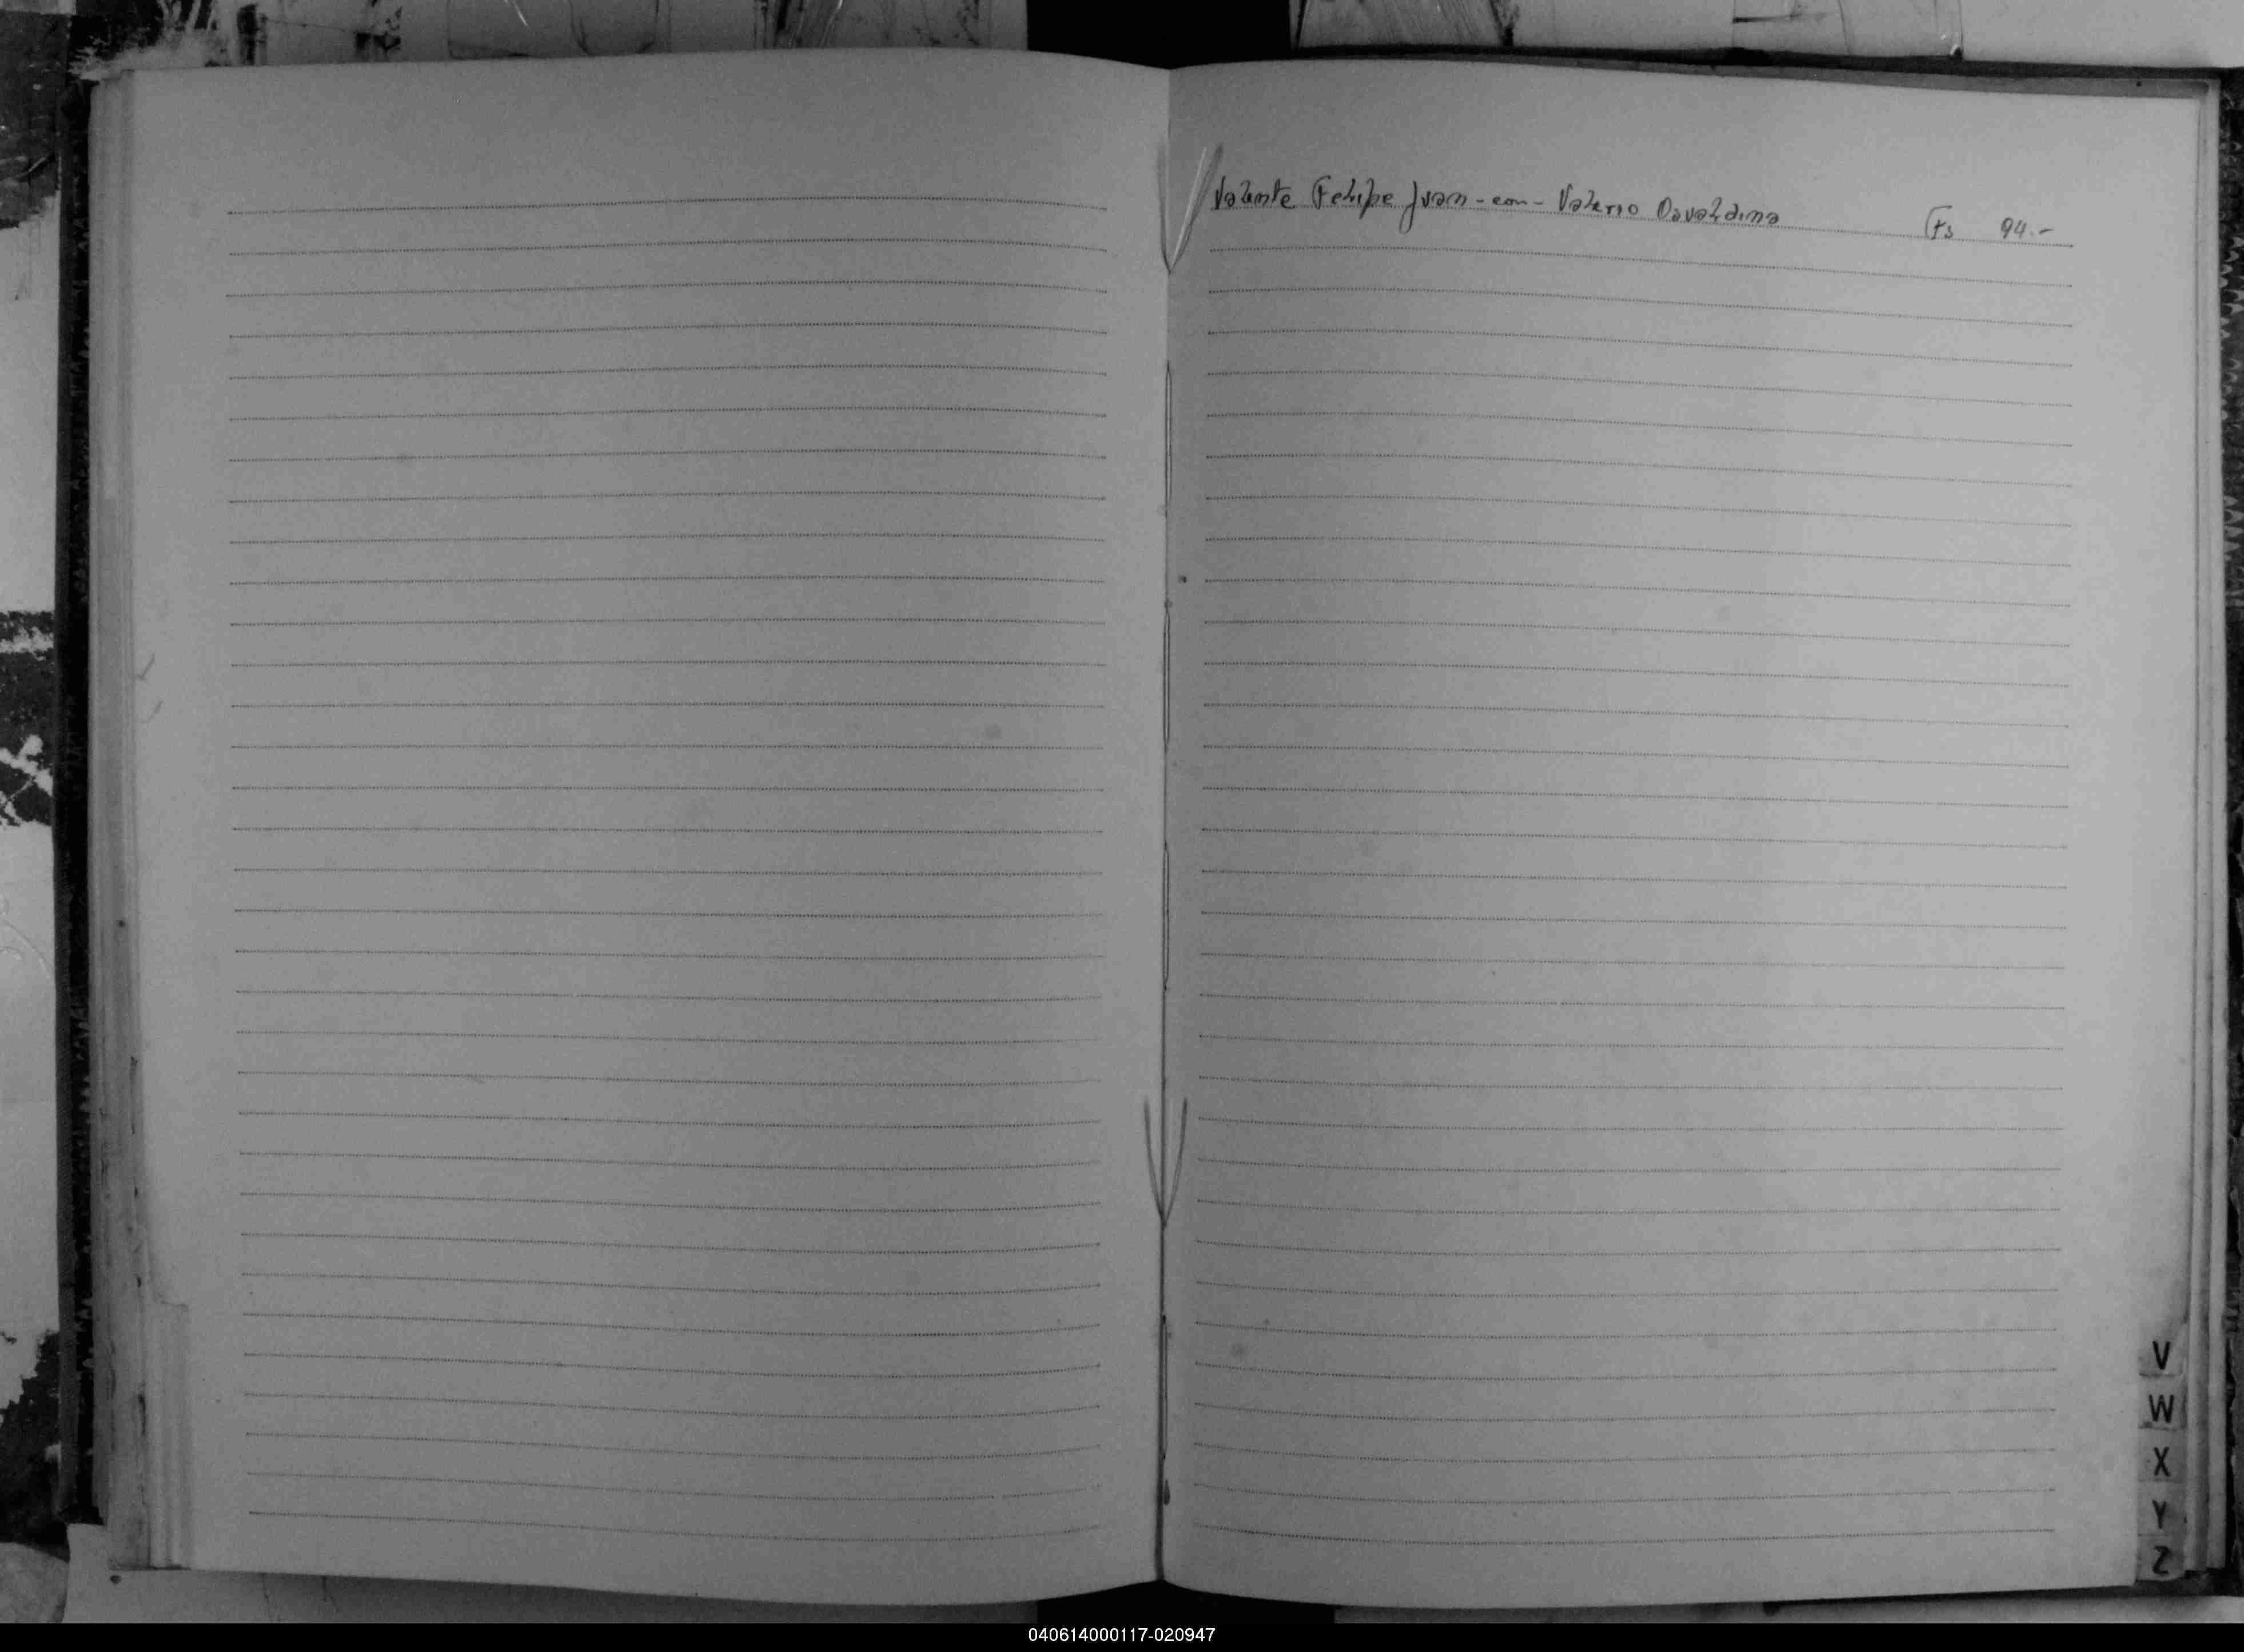 Valente Felipe Juan - con - Valerio Davaldina Fs 94.-
V
W
X
Y
Z
040614000117-020947